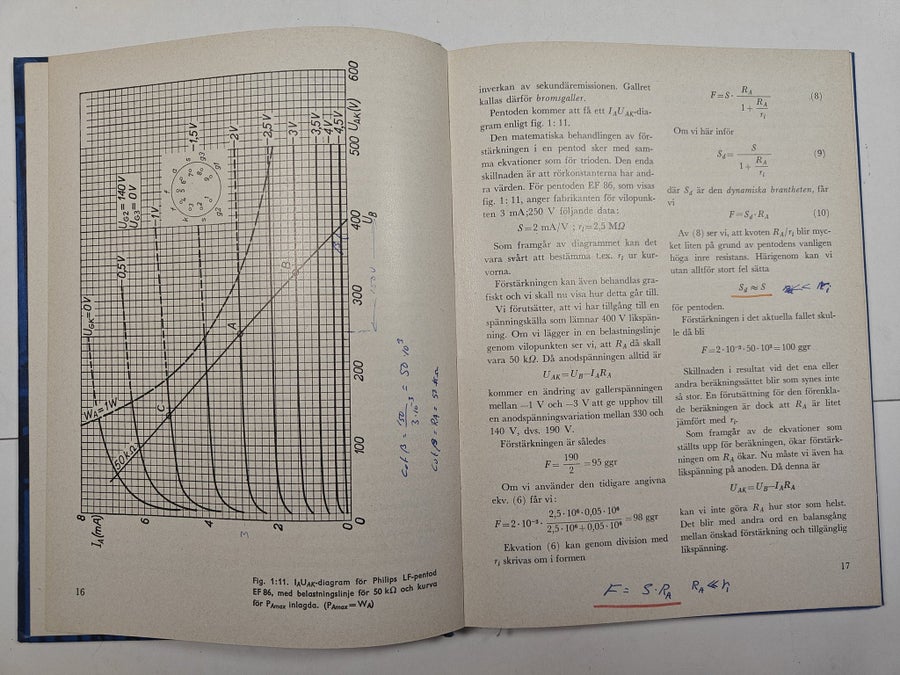 600
500 U_AK(V)
400 U_B
300
200
100
0
8
I_A(mA)
6
4
3
2
0
U_G2=140V
U_G3=0V
U_GK=0V
-0,5V
-1V
-1,5V
-2V
-2,5V
-3V
-3,5V
-4V
-4,5V
W_A=1W
50kΩ
A
B
C
cot β = 150 / 3·10⁻³ = 50·10³
cot β = R_A = 50 kΩ
Fig. 1:11. I_AU_AK-diagram för Philips LF-pentod
EF 86, med belastningslinje för 50 kΩ och kurva
för P_Amax inlagda. (P_Amax=W_A)
16
inverkan av sekundäremissionen. Gallret
kallas därför bromsgaller.
Pentoden kommer att få ett I_AU_AK-dia-
gram enligt fig. 1: 11.
Den matematiska behandlingen av för-
stärkningen i en pentod sker med sam-
ma ekvationer som för trioden. Den enda
skillnaden är att rörkonstanterna har and-
ra värden. För pentoden EF 86, som visas
fig. 1: 11, anger fabrikanten för vilopunk-
ten 3 mA;250 V följande data:
S=2 mA/V ; r_i=2,5 MΩ
Som framgår av diagrammet kan det
vara svårt att bestämma t.ex. r_i ur kur-
vorna.
Förstärkningen kan även behandlas gra-
fiskt och vi skall nu visa hur detta går till.
Vi förutsätter, att vi har tillgång till en
spänningskälla som lämnar 400 V likspän-
ning. Om vi lägger in en belastningslinje
genom vilopunkten ser vi, att R_A då skall
vara 50 kΩ. Då anodspänningen alltid är
U_AK=U_B−I_AR_A
kommer en ändring av gallerspänningen
mellan −1 V och −3 V att ge upphov till
en anodspänningsvariation mellan 330 och
140 V, dvs. 190 V.
Förstärkningen är således
F= 190 / 2 =95 ggr
Om vi använder den tidigare angivna
ekv. (6) får vi:
F=2·10⁻³· 2,5·10⁶·0,05·10⁶ / 2,5·10⁶+0,05·10⁶ =98 ggr
Ekvation (6) kan genom division med
r_i skrivas om i formen
F=S· R_A / 1+ R_A / r_i (8)
Om vi här inför
S_d= S / 1+ R_A / r_i (9)
där S_d är den dynamiska brantheten, får
vi
F=S_d·R_A (10)
Av (8) ser vi, att kvoten R_A/r_i blir myc-
ket liten på grund av pentodens vanligen
höga inre resistans. Härigenom kan vi
utan alltför stort fel sätta
S_d ≈ S
för pentoden.
Förstärkningen i det aktuella fallet skul-
le då bli
F=2·10⁻³·50·10³=100 ggr
Skillnaden i resultat vid det ena eller
andra beräkningssättet blir som synes inte
så stor. En förutsättning för den förenkla-
de beräkningen är dock att R_A är litet
jämfört med r_i.
Som framgår av de ekvationer som
ställts upp för beräkningen, ökar förstärk-
ningen om R_A ökar. Nu måste vi även ha
likspänning på anoden. Då denna är
U_AK=U_B−I_AR_A
kan vi inte göra R_A hur stor som helst.
Det blir med andra ord en balansgång
mellan önskad förstärkning och tillgänglig
likspänning.
17
F = S·R_A R_A ≪ r_i